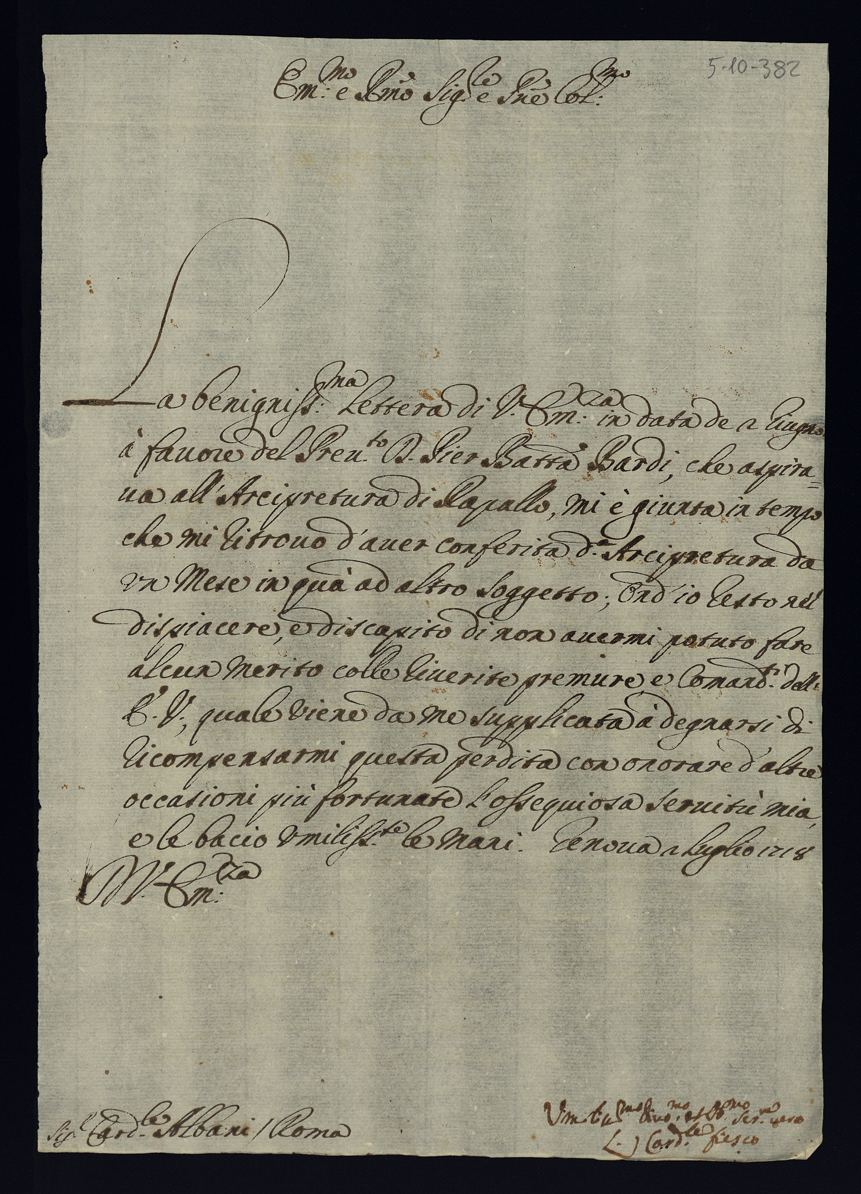 5-10-382
Em:mo e Rmo Sig.re e Prōe Col:mo
La benigniss:ma Lettera di V. Em:za in data de 2 Giugno
à fauore del Preu.to D. Pier Batta Bardi, che aspira=
ua all'Arcipretura di Rapallo, mi è giunta in tempo
che mi ritrouo d'auer conferita d.a Arcipretura da
vn Mese in quà ad altro Soggetto; Ond'io resto nel
dispiacere, e discapito di non auermi potuto fare
alcun merito colle riuerite premure, e Comand.ti dell'
E. V., quale viene da me supplicata à degnarsi di
ricompensarmi questa perdita con onorare d'altre
occasioni più fortunate l'ossequiosa seruitù mia,
e le bacio vmiliss.te le Mani. Genoua 2 Luglio 1718
D V. Em:za
Sig.r Card.le Albani / Roma
Vmil.mo Diuo.mo et Ob.mo Ser.re vero
L.) Card.le fiesco